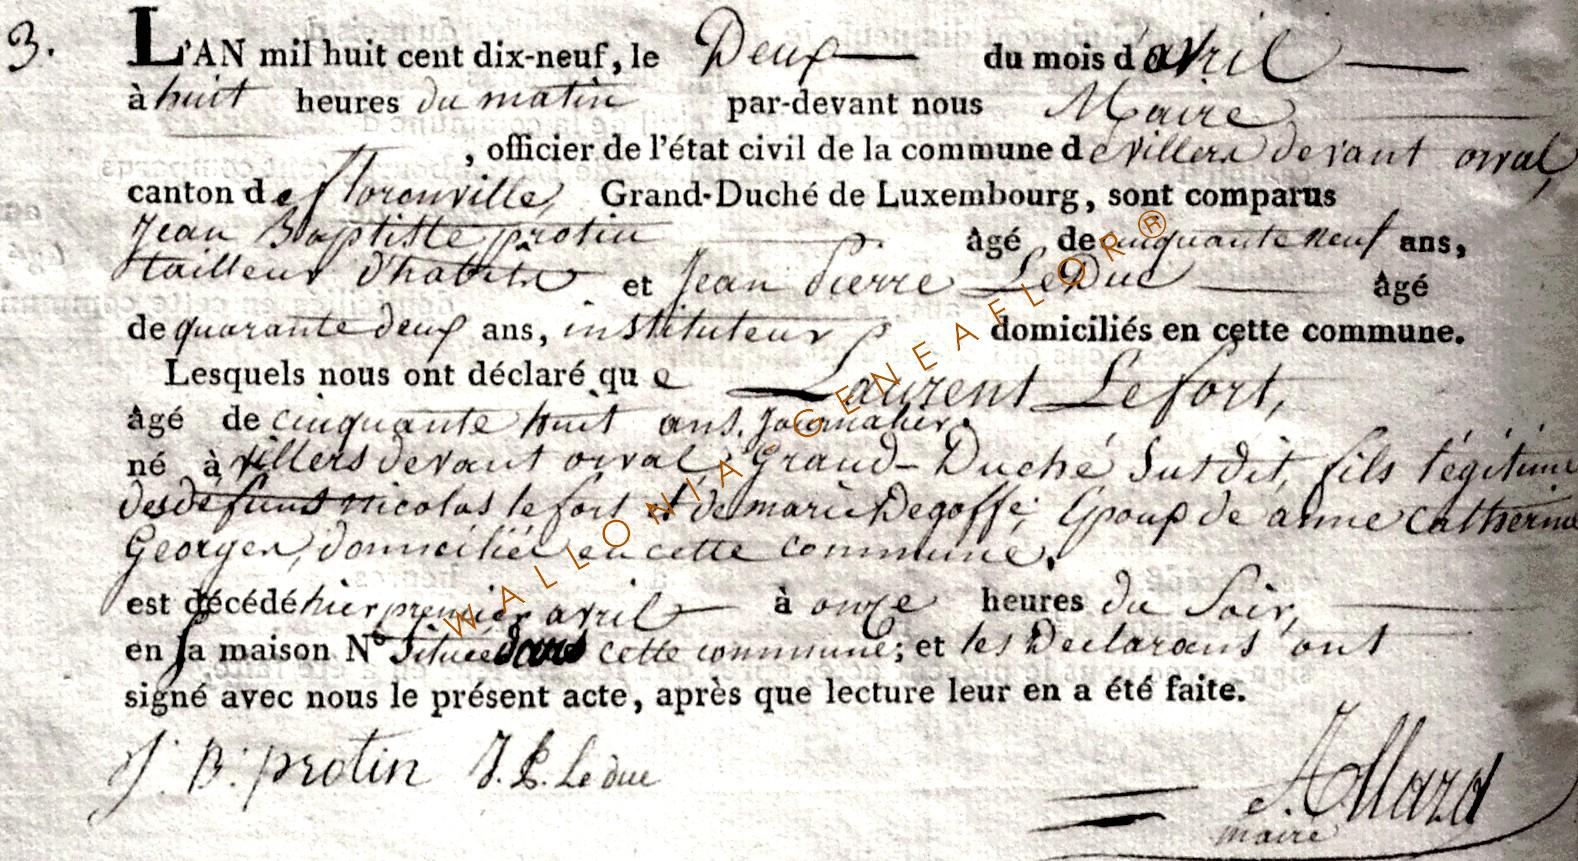 3. L'AN mil huit cent dix-neuf, le Deux du mois d'avril
à huit heures du matin par-devant nous Maire
, officier de l'état civil de la commune de villers devant orval,
canton de florenville, Grand-Duché de Luxembourg, sont comparus
Jean Baptiste protin âgé de cinquante neuf ans,
tailleur d'habits et Jean Pierre LeDuc âgé
de quarante deux ans, instituteur domiciliés en cette commune.
Lesquels nous ont déclaré que Laurent Lefort,
âgé de cinquante huit ans. Journalier.
né à villers devant orval, Grand-Duché Susdit, fils légitime
des défunts nicolas lefort et de marie Degoffe; Epoux de anne catherine
Georges, domiciliée en cette commune.
est décédé hier premier avril à onze heures du Soir,
en sa maison N° Située dans cette commune; et les Declarans ont
signé avec nous le présent acte, après que lecture leur en a été faite.
J. B. protin J. P. Le duc
maire
WALLONIA-GENEAFLOR®